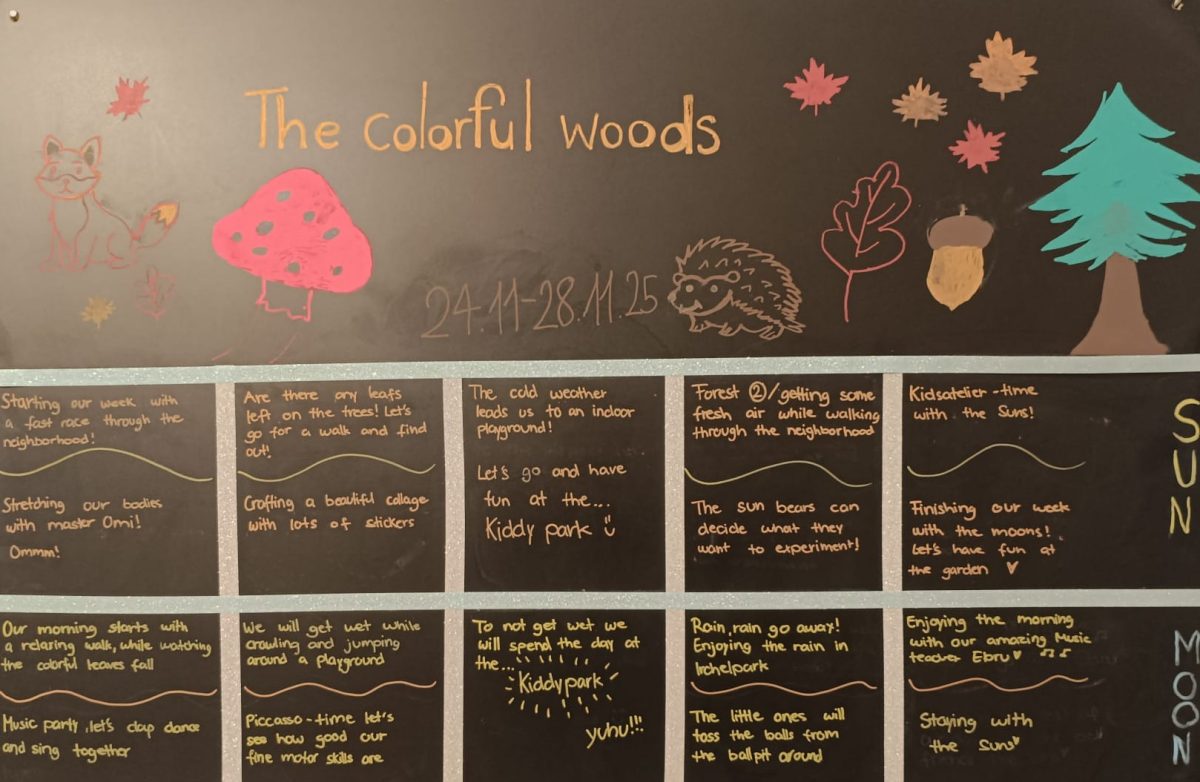 The colorful woods
24.11-28.11.25
Starting our week with
a fast race through the
neighborhood!
Stretching our bodies
with master Omi!
Ommm!
Are there any leafs
left on the trees! Let's
go for a walk and find
out!
Crafting a beautiful collage
with lots of stickers
The cold weather
leads us to an indoor
playground!
Let's go and have
fun at the...
Kiddy park
Forest ②/getting some
fresh air while walking
through the neighborhood
The sun bears can
decide what they
want to experiment!
Kidsatelier-time
with the Suns!
Finishing our week
with the moons!
Let's have fun at
the garden
SUN
Our morning starts with
a relaxing walk, while watching
the colorful leaves fall
Music party, let's clap dance
and sing together
We will get wet while
crawling and jumping
around a playground
Piccasso-time let's
see how good our
fine motor skills are
To not get wet we
will spend the day at
the...
Kiddypark
yuhu!!!
Rain, rain go away!
Enjoying the rain in
Irchelpark
The little ones will
toss the balls from
the ballpit around
Enjoying the morning
with our amazing Music
teacher Ebru
Staying with
the Suns
MOON